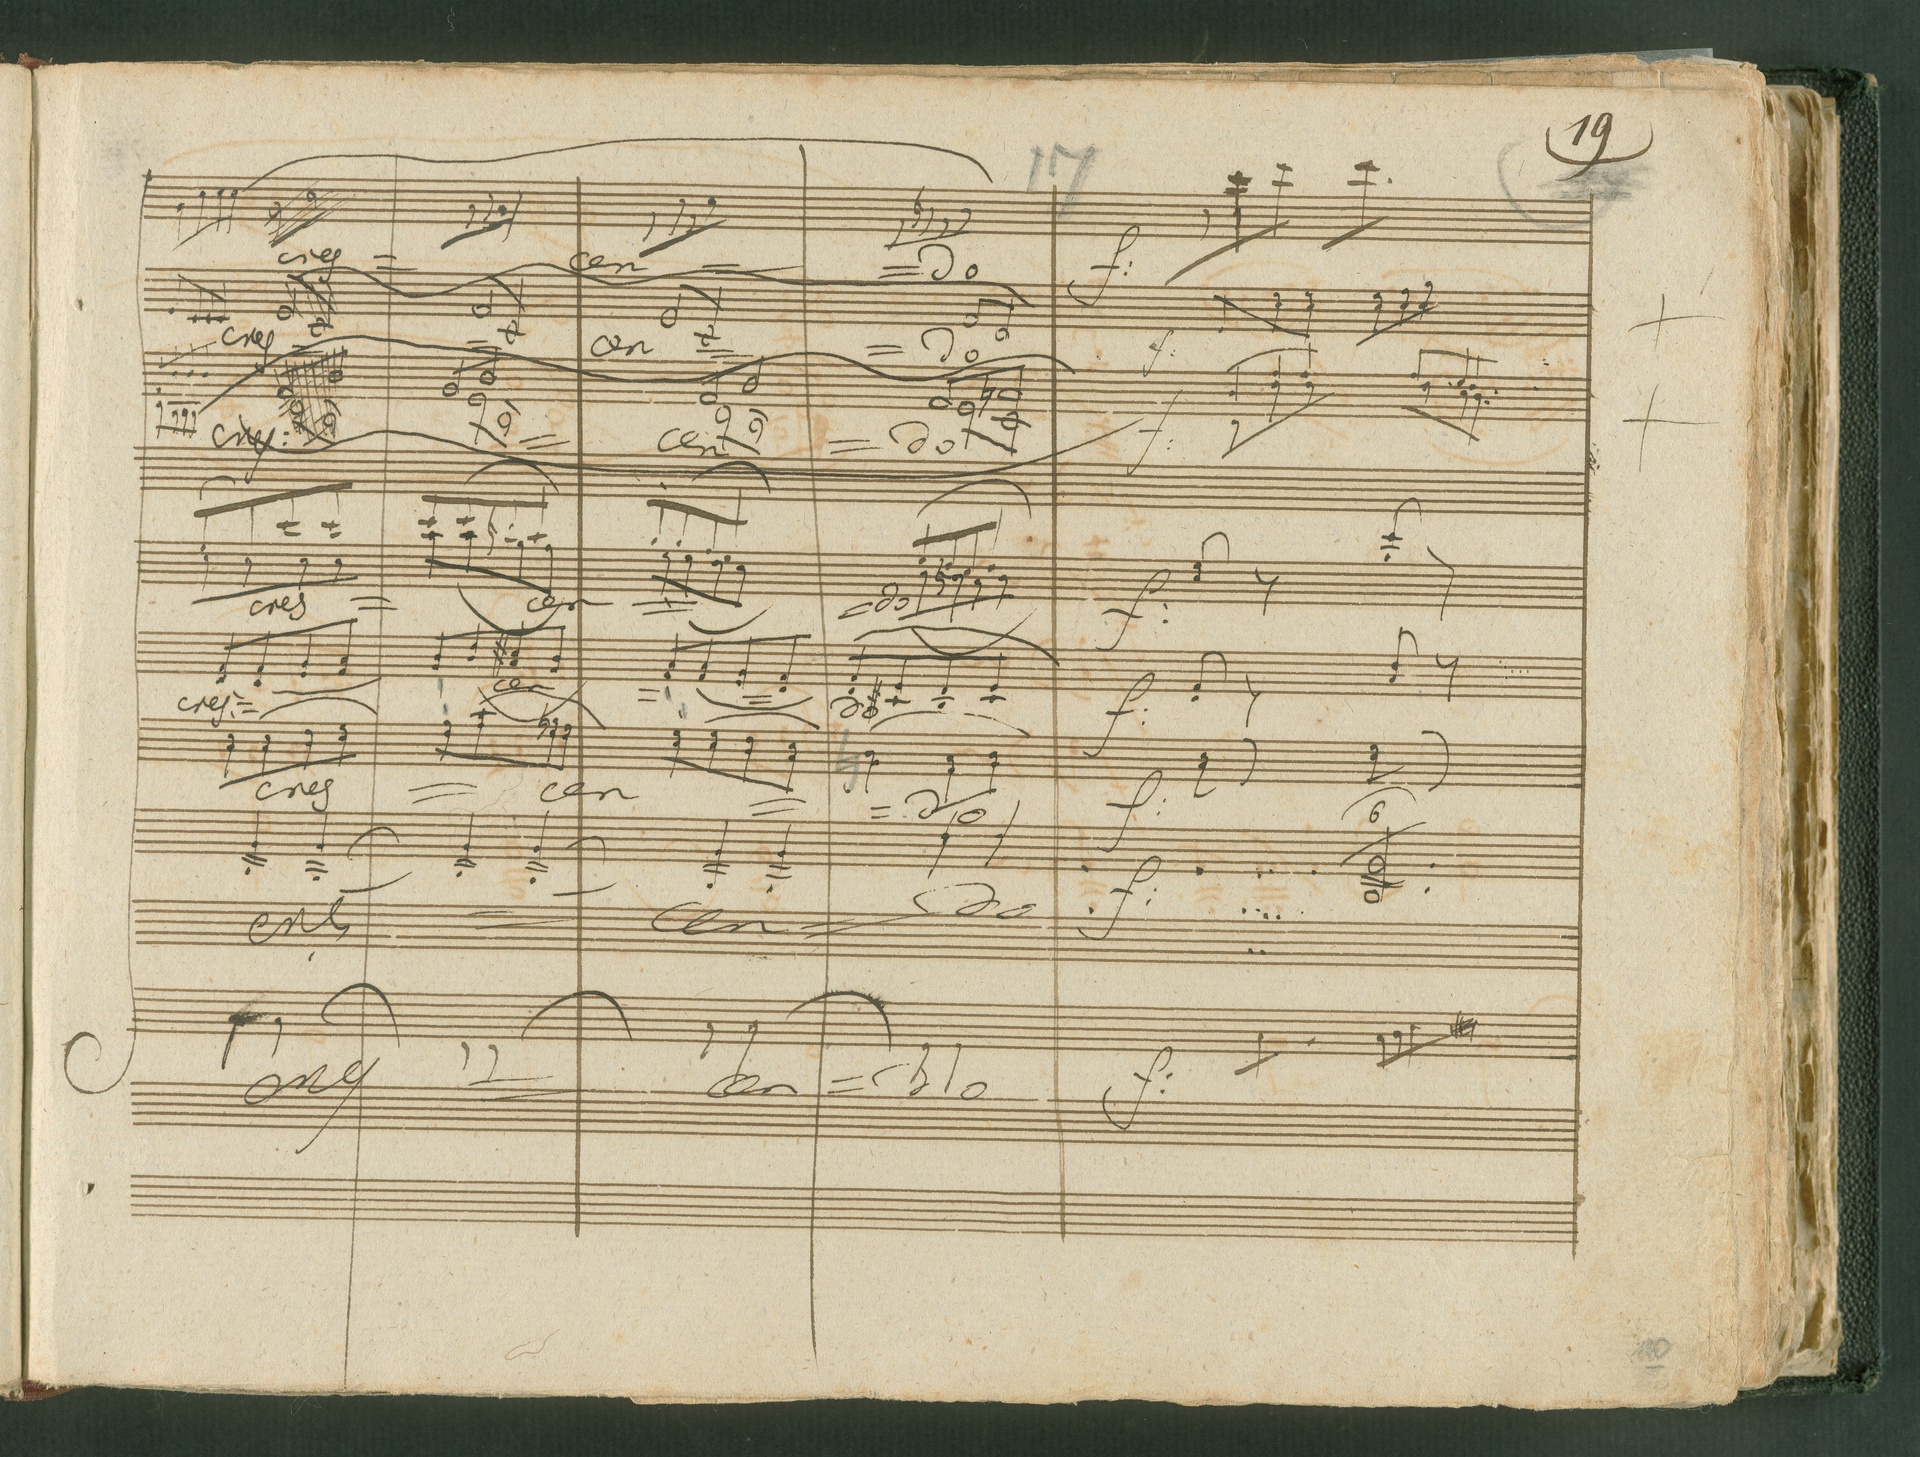 19
17
cres = cen = = do f:
cres = cen = = do f:
cres: = cen = do f:
cres = cen = = do f:
cres: = cen = = do f:
cres = cen = = do f:
6
cres = cen = do f:
cres = cen = do f: